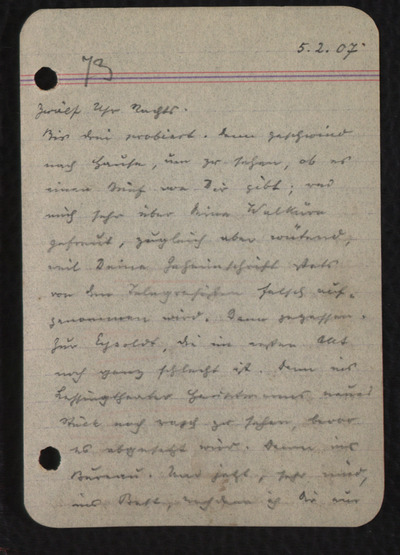 5.2.07.
73
Zwölf Uhr Nachts.
Bis drei probiert. Dann geschwind
nach Hause, um zu sehen, ob es
einen Brief von Dir gibt; und
mich sehr über Deine Walküre
gefreut, zugleich aber wütend,
weil Deine Geheimschrift stets
von den Telegrafisten falsch auf-
genommen wird. Dann gegessen.
Zur Eysoldt, die im ersten Akt
noch ganz schlecht ist. Dann ins
Lessingtheater Hauptmanns neues
Stück noch rasch zu sehen, bevor
es abgesetzt wird. Dann ins
Bureau. Und jetzt, sehr müd,
ins Bett, nachdem ich Dir nur